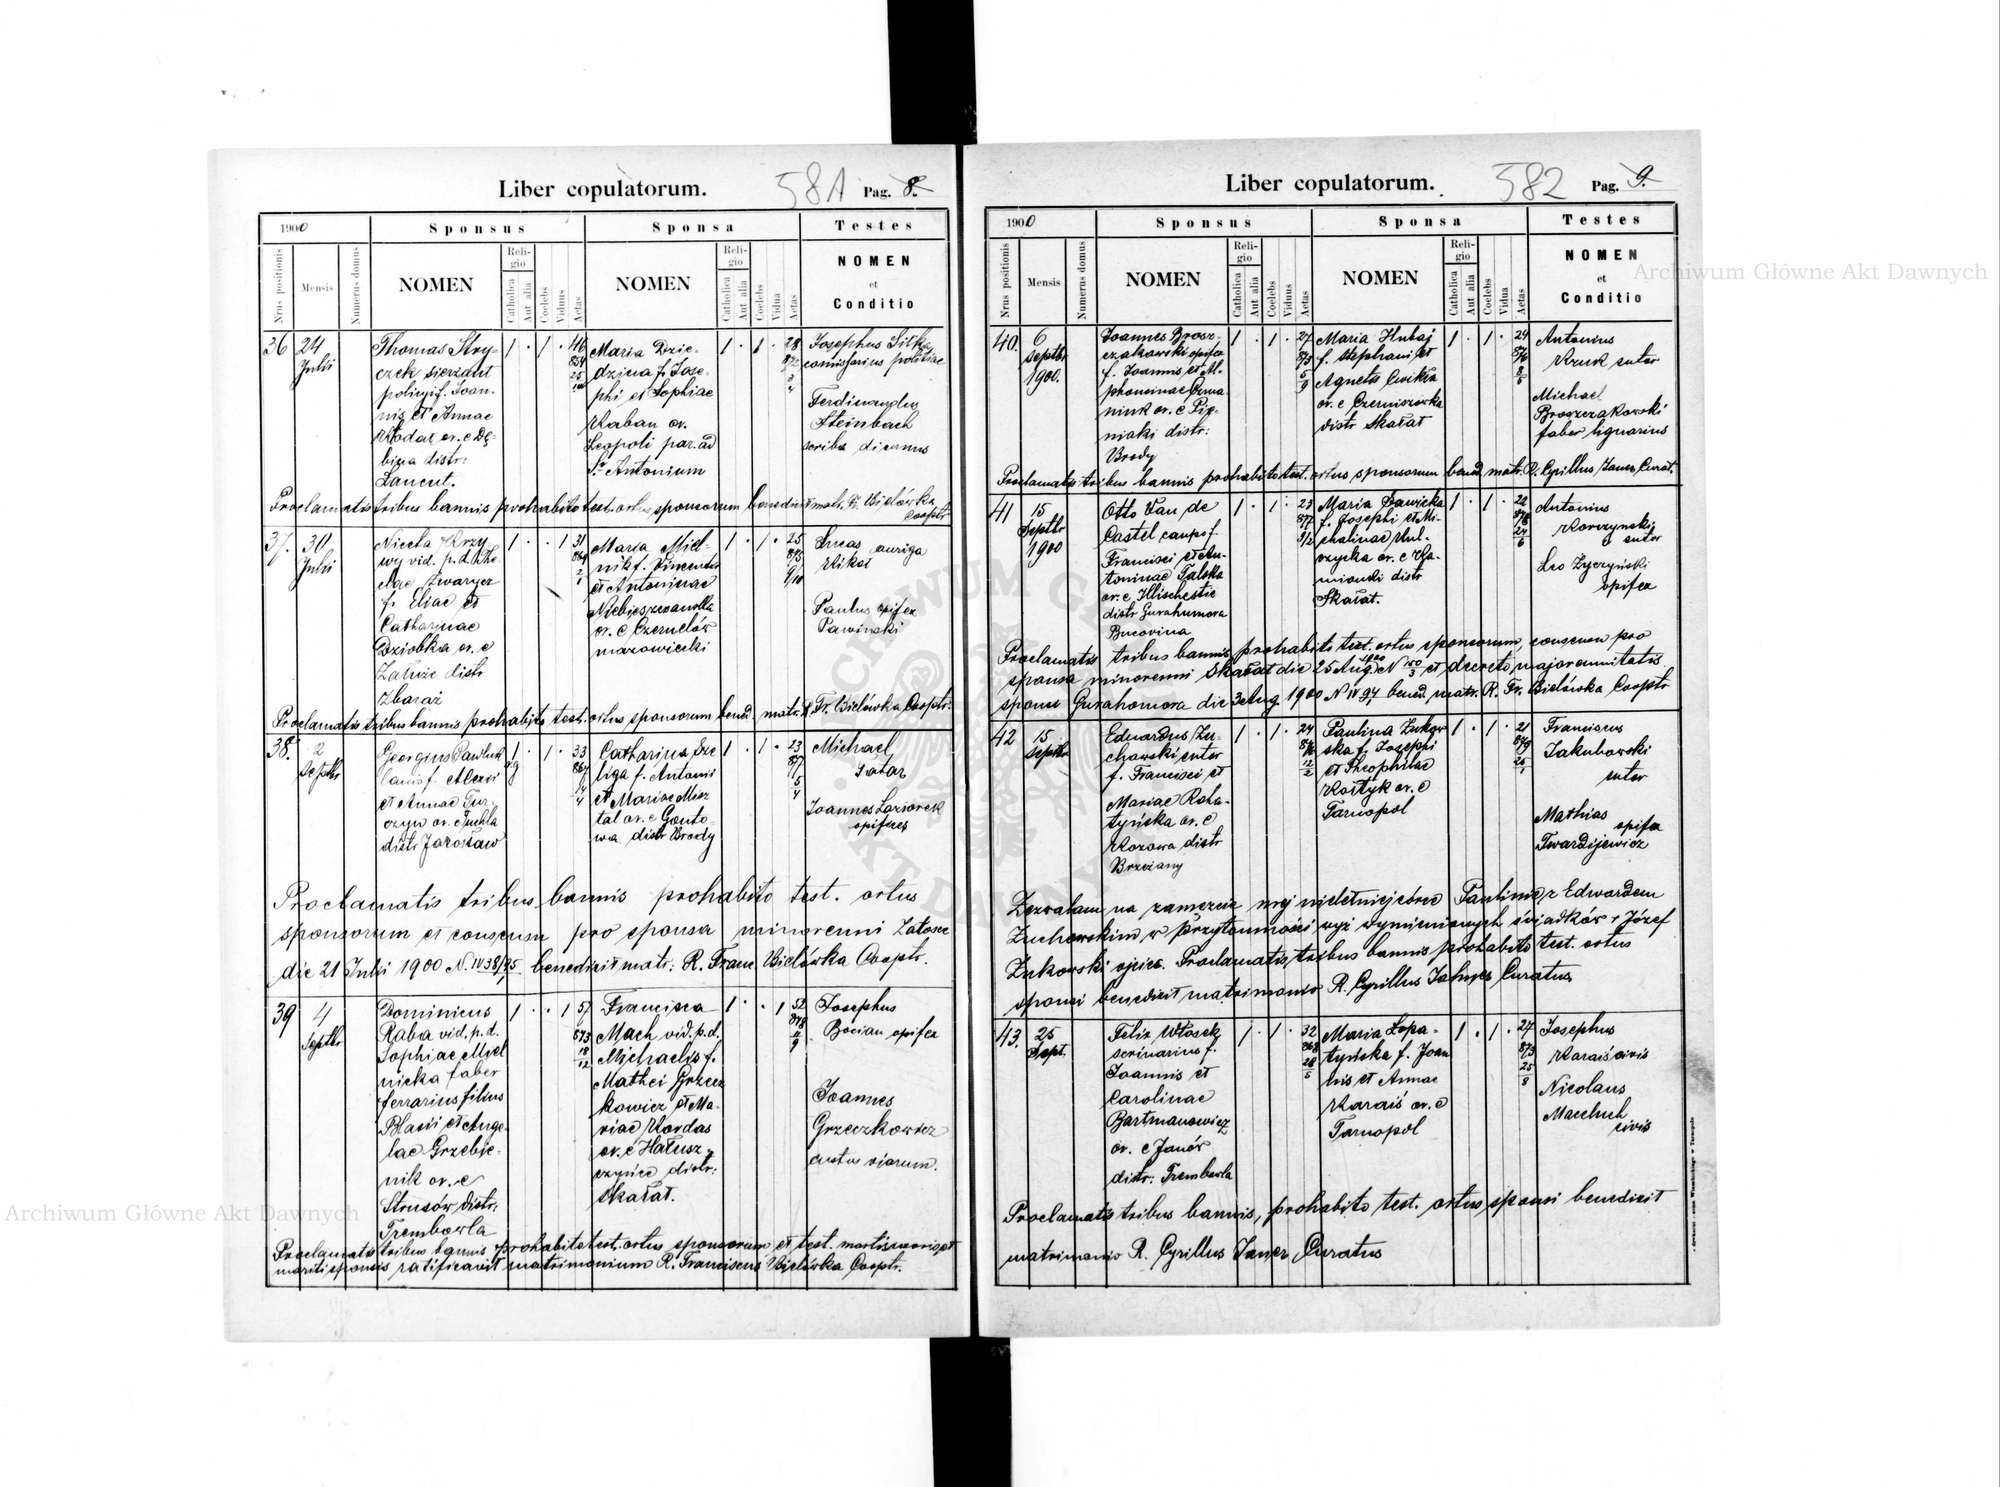 Archiwum Główne Akt Dawnych
Liber copulatorum.
581
Pag. 8.
1900
Sponsus
Sponsa
Testes
Nrus positionis
Mensis
Numerus domus
NOMEN
Religio
Catholica
Aut alia
Coelebs
Viduus
Aetas
NOMEN
Religio
Catholica
Aut alia
Coelebs
Vidua
Aetas
NOMEN
et
Conditio
36
24
Julii
Thomas Stry-
czek sierżant
policyi f. Joan-
nis et Annae
Kodar or. e Dę-
bina distr:
Łancut.
1 . 1 . 46
854
Maria Dzie-
dzina f. Jose-
phi et Sophiae
Kaban or.
Leopoli par. ad
S. Antonium
1 . 1 . 28
872
Josephus Sitka
comissarius politiae
Ferdinandus
Steinbach
scriba diurnus
Proclamatis tribus bannis prohabito test. ortus sponsorum benedixit matr. Fr. Bielówka
Cooptr
37.
30
Julii
Niceta Krzy
wy vid. p. d. The
clae Zwarycz
f. Eliae et
Catharinae
Dziobka or. e
Załuże distr
Zbaraż
1 . . 1 31
869
Maria Miel-
nik f. Vincentii
et Antoninae
or. e Czernelów
mazowiecki
1 . 1 . 25
875
9/10
Lucas auriga
Kikot
Paulus opifex
Pawiński
Proclamatis tribus bannis prohabito test. ortus sponsorum bened. matr. R. Fr. Bielówka Cooptr.
38.
2
Septbr
Georgius Pawluk
f. Alexii
et Annae Tur-
czyn or. e Tuchla
distr Jarosław
1 . 1 . 33
867
Catharina Sze
liga f. Antonii
et Mariae Misz
tal or. e Gonto-
wa distr Brody
1 . 1 . 23
877
5
4
Michael
Satar
Joannes Laziorek
opifices
Proclamatis tribus bannis prohabito test. ortus
sponsorum et consensu pro sponsa minorenni Załosce
die 21 Julii 1900 N. IV 38/95 benedixit matr: R. Franc Bielówka Cooptr.
39
4
Septbr
Dominicus
Raba vid. p. d.
Sophiae Miel
nicka faber
ferrarius filius
Blasii et Ange-
lae Grzebie-
nik or. e
Strusów distr.
Trembowla
1 . . 1 57
18
12
Francisca
Mach vid. p. d.
Michaelis f.
Mathei Grzecz
kowicz et Ma-
riae Kordas
or. e Hałusz-
czyńce distr:
Skałat.
1 . . 1 52
Josephus
Bocian opifex
Joannes
Grzeczkowicz
custos viarum.
Proclamatis tribus bannis prohabito test. ortus sponsorum et test. mortis uxoris et
mariti sponsis ratificavit matrimonium R. Franciscus Bielówka Cooptr.
Liber copulatorum.
582
Pag. 9.
1900
Sponsus
Sponsa
Testes
Nrus positionis
Mensis
Numerus domus
NOMEN
Religio
Catholica
Aut alia
Coelebs
Viduus
Aetas
NOMEN
Religio
Catholica
Aut alia
Coelebs
Vidua
Aetas
NOMEN
et
Conditio
Archiwum Główne Akt Dawnych
40.
6
Septbr
1900.
Joannes Brosz-
czakowski opifex
f. Joannis et Al-
phonsinae
or. e Pie-
niaki distr:
Brody
1 . 1 . 27
873
5
9
Maria Hubaj
f. Stephani et
Agnetis Ćwikła
or. e Czerniszówka
distr Skałat
1 . 1 . 24
876
8
5
Antonius
Kruk sutor
Michael
Broszczakowski
faber lignarius
Proclamatis tribus bannis prohabito test. ortus sponsorum bened. matr. R. Cyrillus Janer Curat.
41
15
Septbr
1900
Otto Van de
Castel caupo f.
Francisci et An-
toninae Talska
or. e Illischestie
distr Gurahumora
Bucovina
1 . 1 . 23
877
9/2
Maria Sawicka
f. Josephi et Mi-
chalinae Kul-
czycka or. e Ka-
mionki distr
Skałat.
1 . 1 . 22
878
24
6
Antonius
Korzynski
sutor
Leo Życzyński
opifex
Proclamatis tribus bannis prohabito test. ortus sponsorum, consensu pro
sponsa minorenni Skałat die 25 Aug. 1900 N 150/3 et decreto majorennitatis
sponsi Gurahomora die 3 Aug. 1900 N IV 94 bened matr. R. Fr. Bielówka Cooptr
42
15
Septbr
Eduardus Żu-
chowski sutor
f. Francisci et
Mariae Roha-
tyńska or. e
Kozowa distr
Brzeżany
1 . 1 . 24
876
12
2
Paulina Żukow
ska f. Josephi
et Theophilae
Kostyk or. e
Tarnopol
1 . 1 . 21
879
26
1
Franciscus
Jakubowski
sutor
Mathias opifex
Twardijewicz
Zezwalam na zamęzcie mej nieletniej córce Paulinie z Edwardem
Żuchowskim w przytomności wyż wymienionych świadków + Józef
Żukowski ojciec. Proclamatis tribus bannis prohabito test. ortus
sponsi benedixit matrimonio R. Cyrillus Janer Curatus
43.
25
Sept.
Felix Włosek
scriniarius f.
Joannis et
Carolinae
Bartmanowicz
or. e Janów
distr: Trembowla
1 . 1 . 32
868
28
5
Maria Łopa-
tyńska f. Joan
nis et Annae
Karaiś or. e
Tarnopol
1 . 1 . 27
873
25
8
Josephus
Karaiś civis
Nicolaus
Macełuch
civis
Proclamatis tribus bannis, prohabito test. ortus sponsi benedixit
matrimonio R. Cyrillus Janer Curatus
Archiwum Główne Akt Dawnych